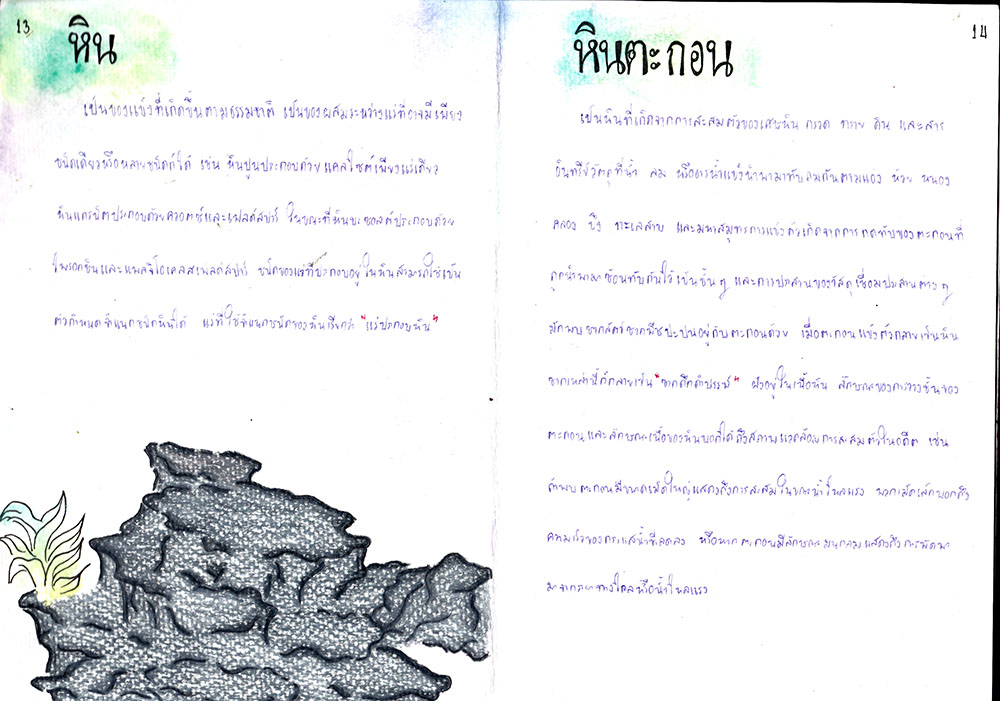 13
หิน
เป็นของแข็งที่เกิดขึ้นตามธรรมชาติ เป็นของผสมระหว่างแร่ที่อาจมีเพียง
ชนิดเดียวหรือหลายชนิดก็ได้ เช่น หินปูนประกอบด้วย แคลไซต์เพียงแร่เดียว
หินแกรนิตประกอบด้วยควอตซ์และเฟลด์สปาร์ ในขณะที่หินบะซอลต์ประกอบด้วย
ไพรอกซีนและแพลจิโอเคลสเฟลด์สปาร์ ชนิดของแร่ที่ประกอบอยู่ในหินสามารถใช้เป็น
ตัวกำหนดจำแนกชนิดหินได้ แร่ที่ใช้จำแนกชนิดของหินเรียกว่า "แร่ประกอบหิน"
14
หินตะกอน
เป็นหินที่เกิดจากการสะสมตัวของเศษหิน กรวด ทราย ดิน และสาร
อินทรีย์วัตถุที่น้ำ ลม หรือธารน้ำแข็งนำพามาทับถมกันตามแอ่ง ห้วย หนอง
คลอง บึง ทะเลสาบ และมหาสมุทรการแข็งตัวเกิดจากการกดทับของตะกอนที่
ถูกนำพามาซ้อนทับกันไว้เป็นชั้นๆ และการประสานของวัสดุเชื่อมประสานต่างๆ
มักพบซากสัตว์ซากพืชปะปนอยู่กับตะกอนด้วย เมื่อตะกอนแข็งตัวกลายเป็นหิน
ซากเหล่านี้ก็กลายเป็น "ซากดึกดำบรรพ์" ฝังอยู่ในเนื้อหิน ลักษณะของการวางชั้นของ
ตะกอนและลักษณะเนื้อของหินบอกได้ถึงสภาพแวดล้อมการสะสมตัวในอดีต เช่น
ถ้าพบตะกอนมีขนาดเม็ดใหญ่แสดงถึงการสะสมในขณะน้ำไหลแรง พวกเม็ดเล็กบอกถึง
ความเร็วของกระแสน้ำที่ลดลง หรือหากตะกอนมีลักษณะมนกลมแสดงถึงการพัดพา
มาจากระยะทางไกลหรือน้ำไหลแรง